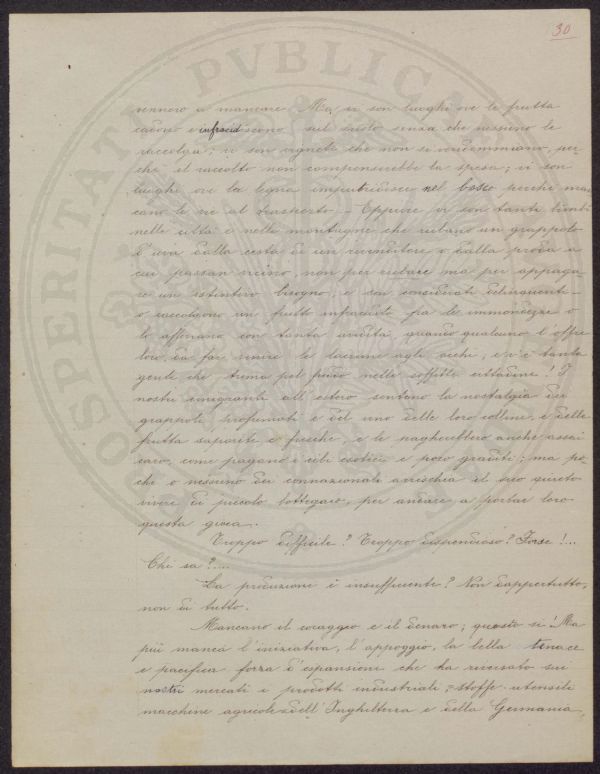 30
PROSPERITATI PVBLICAE
vennero a mancare. Ma vi son luoghi ove le frutta
cadono e infracidiscono sul suolo senza che nessuno le
raccolga; vi son vigneti che non si vendemmiano, per-
chè il raccolto non compenserebbe la spesa; vi son
luoghi ove la legna imputridisce nel bosco perchè man
cano le vie al trasporto. - Eppure vi son tanti bimbi
nelle città e nelle montagne che rubano un grappolo
d'uva dalla cesta di un rivenditore o dalla proda a
cui passan vicino, non per rubare ma per appaga-
re un istintivo bisogno, e son considerati delinquenti -
o raccolgono un frutto infracidito fra le immondezze o
lo afferrano con tanta avidità, quando qualcuno l'offre
loro, da far venire le lacrime agli occhi; e v'è tanta
gente che trema pel freddo nelle soffitte cittadine! I
nostri emigranti all'estero sentono la nostalgia dei
grappoli profumati e del vino delle loro colline, e delle
frutta saporite e fresche, e le pagherebbero anche assai
caro, come pagano i cibi esotici e poco graditi; ma po-
chi o nessuno dei connazionali arrischia il suo quieto
vivere di piccolo bottegaio, per andare a portar loro
questa gioia.
Troppo difficile? Troppo dispendioso? Forse!...
Chi sa?....
La produzione è insufficente? Non dappertutto,
non di tutto.
Mancano il coraggio e il denaro; questo si! Ma
più manca l'iniziativa, l'appoggio, la bella tenace
e pacifica forza d'espansione che ha riversato sui
nostri mercati i prodotti industriali, stoffe utensili
macchine agricole dell'Inghilterra e della Germania,